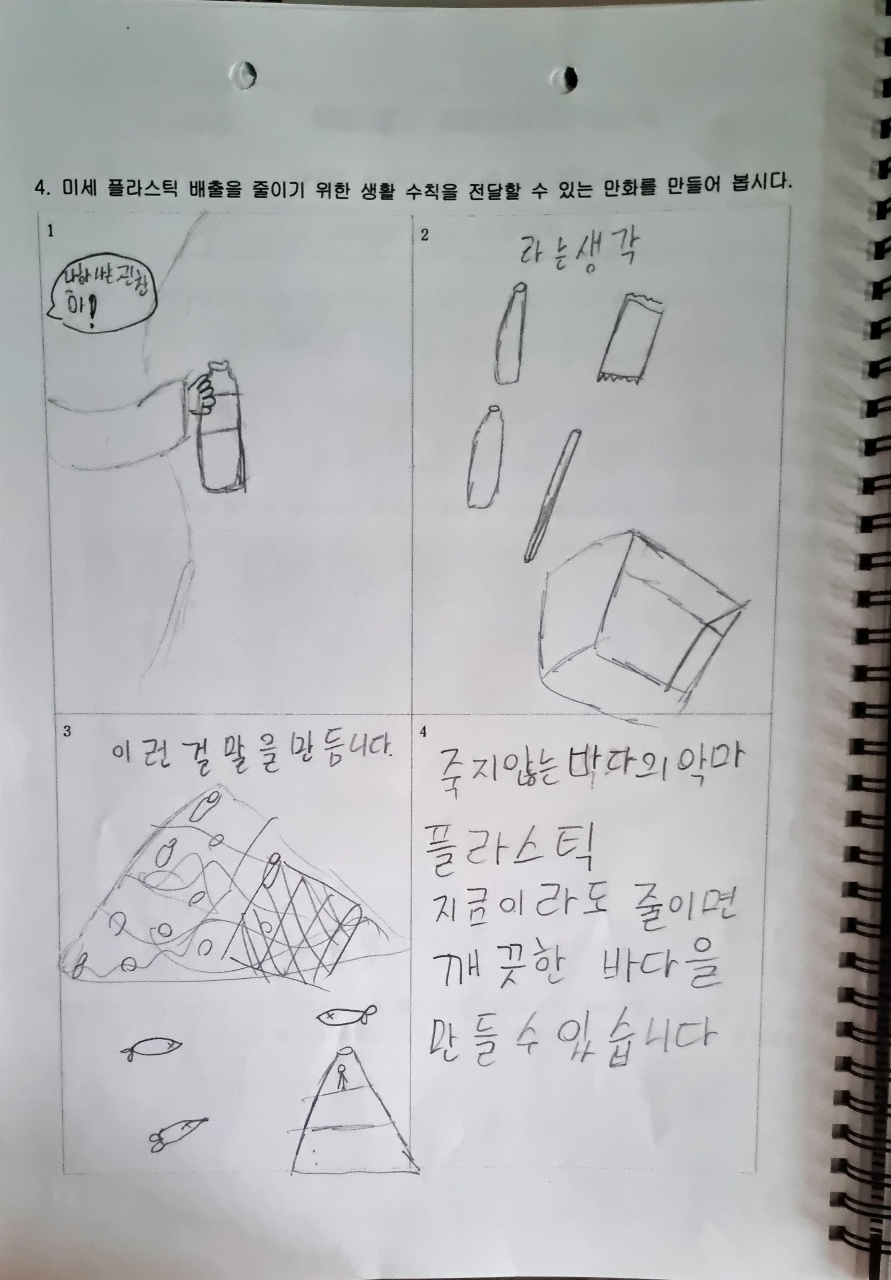 4. 미세 플라스틱 배출을 줄이기 위한 생활 수칙을 전달할 수 있는 만화를 만들어 봅시다.
1
나하나는 괜찮
아!
2
라는생각
3
이런 걸 말을 만듭니다.
4
죽지않는 바다의 악마
플라스틱
지금이라도 줄이면
깨끗한 바다을
만들수있습니다